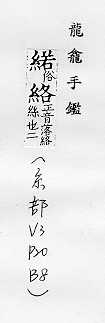 龍龕手鑑
俗絡正音落絡絲也二
(糸部 V3 P20 B8)